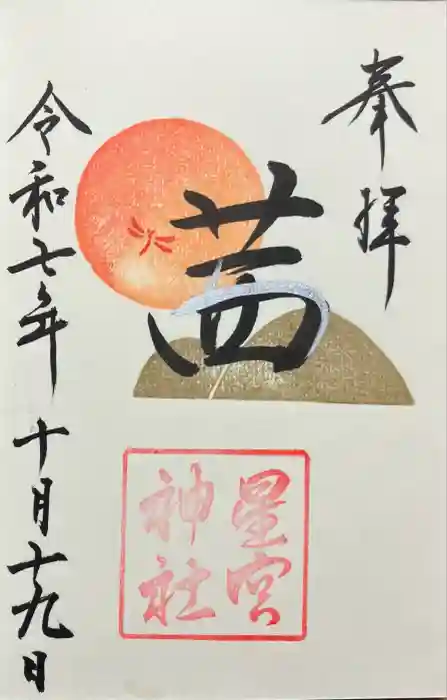 奉拝
茜
星宮
神社
令和七年 十月十九日